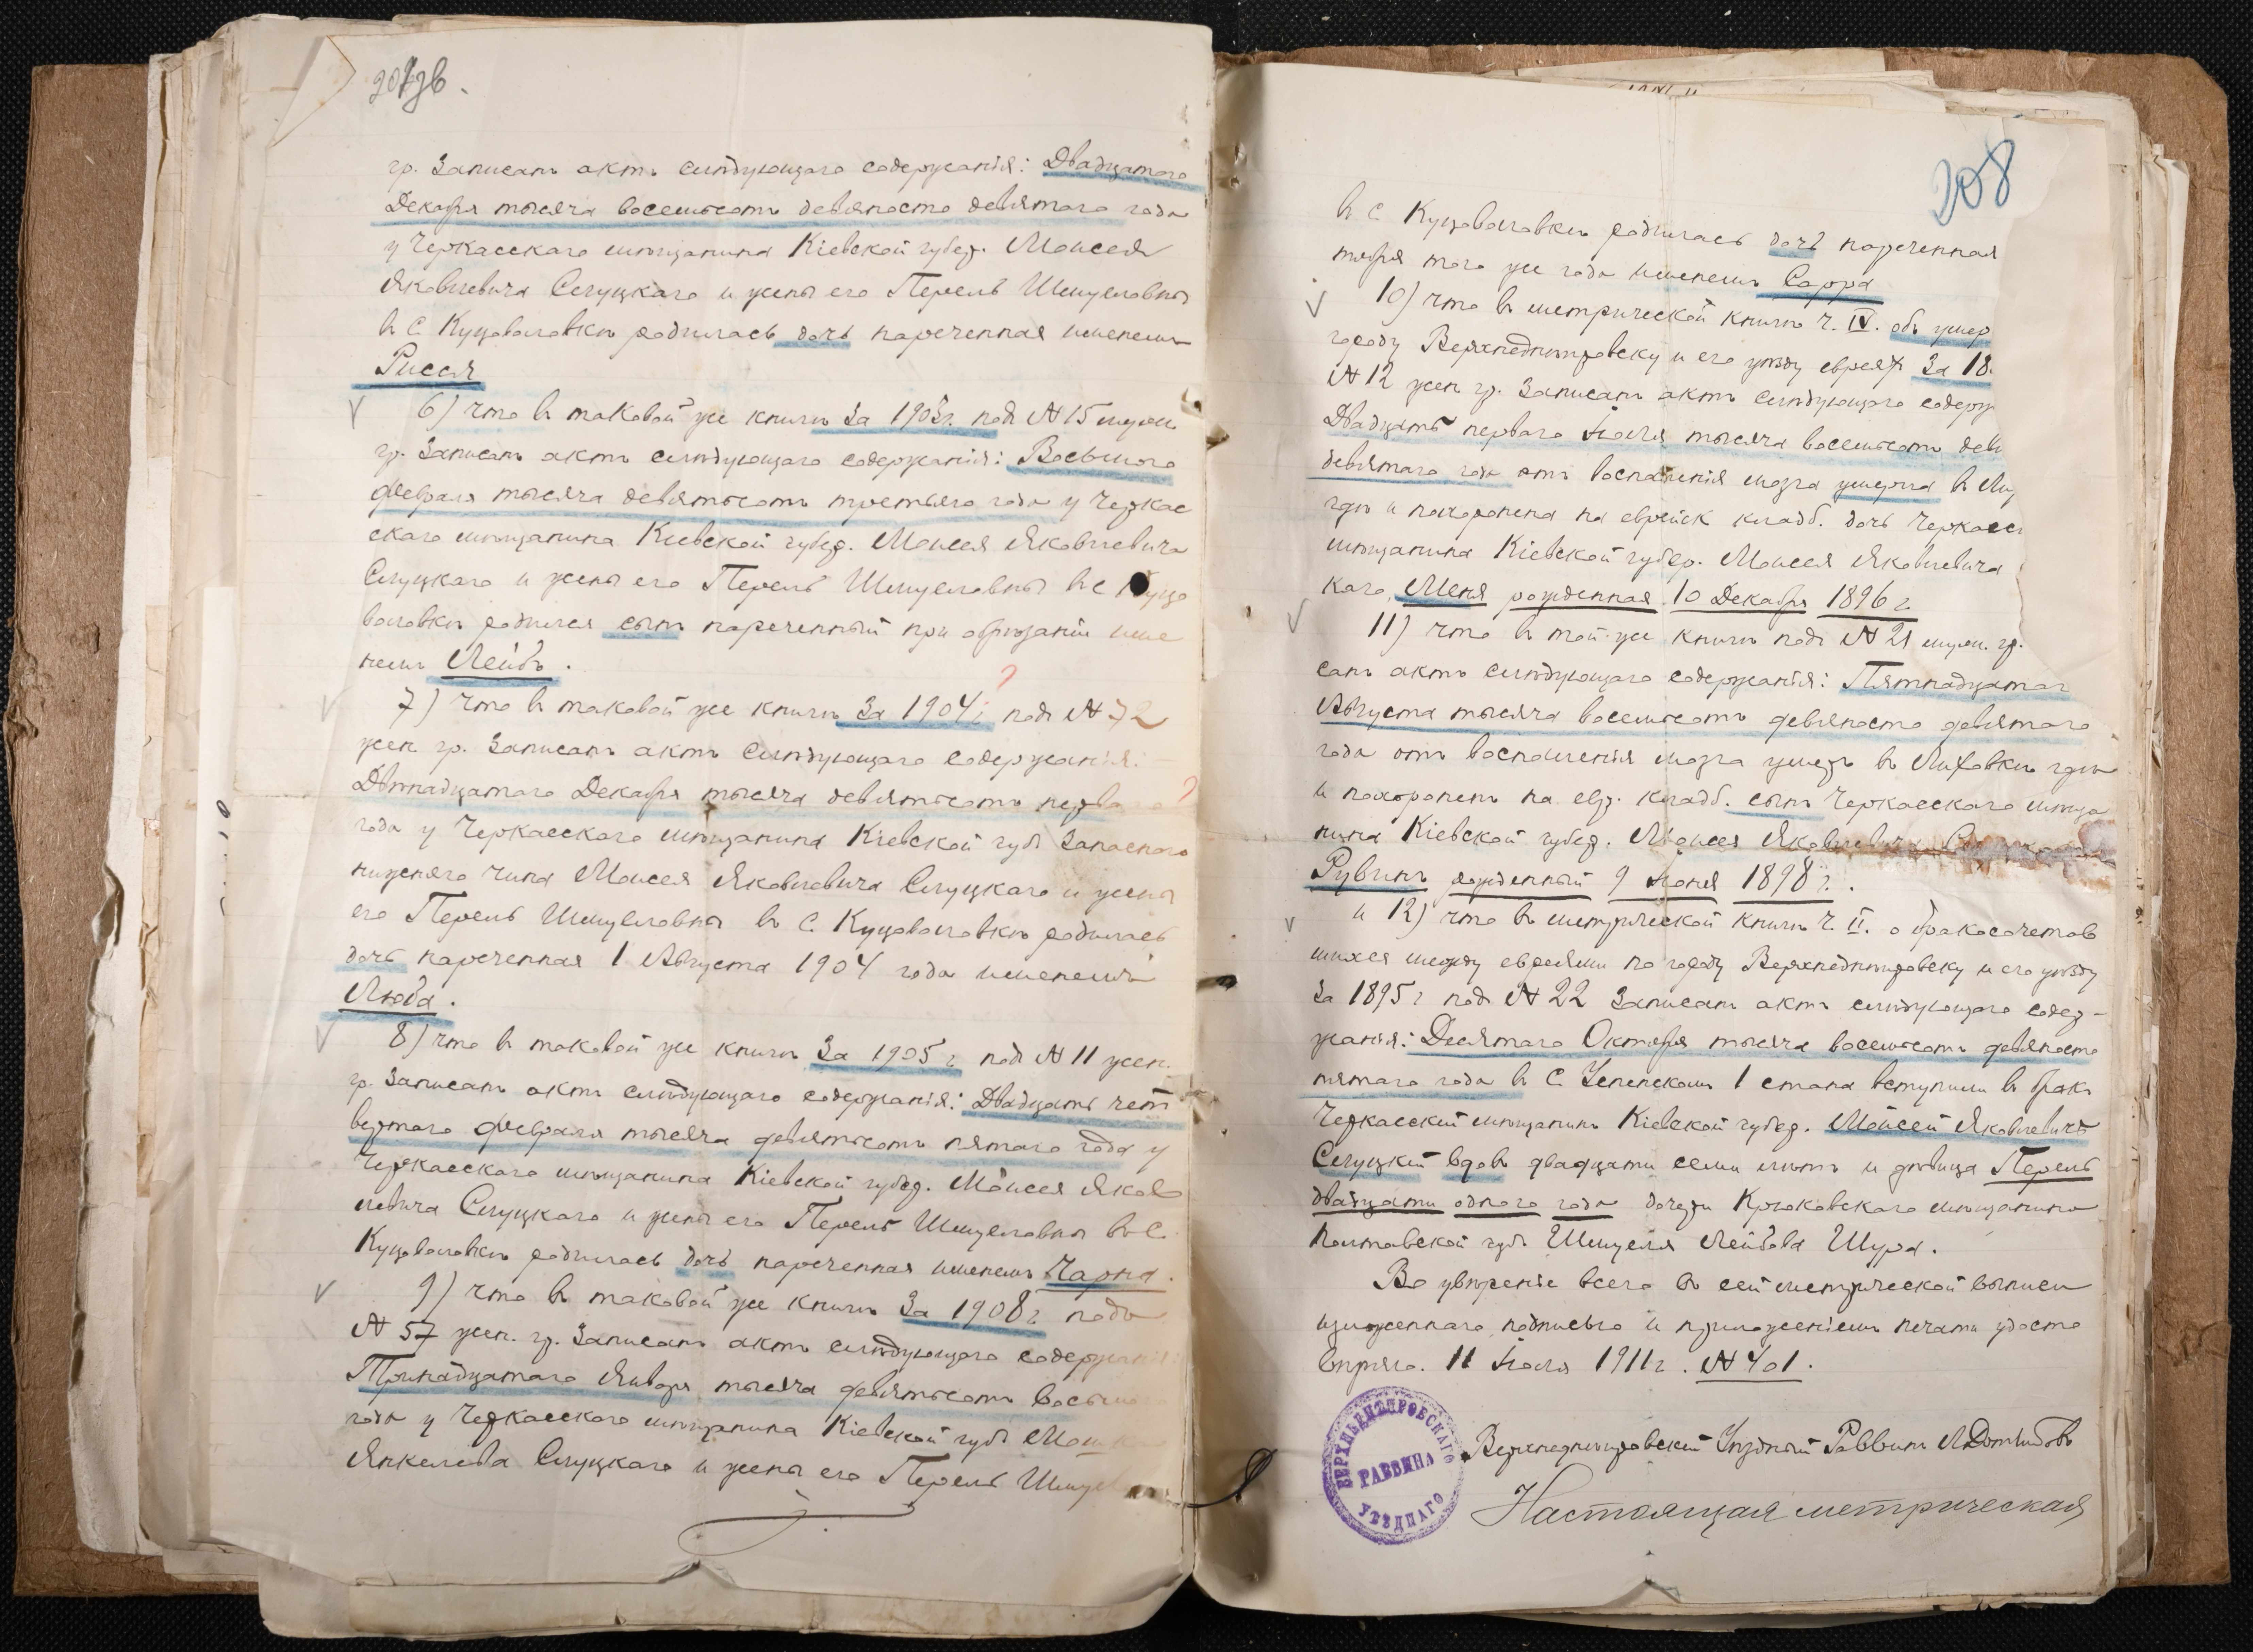 207 зв.
гр. записанъ актъ слѣдующаго содержанія: Двадцатого
Декабря тысяча восемьсотъ девяносто девятаго года
у Черкасскаго мѣщанина Кіевской губер. Моисея
Яковлевича Слуцкаго и жены его Перель Шмуловны
въ с. Куцеволовкѣ родилась дочь нареченная именемъ
Рисся
6) что въ таковой же книгѣ за 1903г. подъ № 15 мужск.
гр. записанъ актъ слѣдующаго содержанія: Восьмого
февраля тысяча девятьсотъ третьяго года у Черкас
скаго мѣщанина Кіевской губер. Моисея Яковлевича
Слуцкаго и жены его Перель Шмуловны въ с Куце
воловкѣ родился сынъ нареченный при обрѣзаніи име
немъ Лейбъ.
7) что въ таковой же книгѣ за 1904г. подъ № 72
жен. гр. записанъ актъ слѣдующаго содержанія:
Двѣнадцатаго Декабря тысяча девятьсотъ перва
года у Черкасскаго мѣщанина Кіевской губ. запаснаго
нижняго чина Моисея Яковлевича Слуцкаго и жены
его Перель Шмуловны въ с. Куцеволовкѣ родилась
дочь нареченная 1 Августа 1904 года именемъ
Люба.
8) что въ таковой же книгѣ за 1905 г. подъ № 11 жен.
гр. записанъ актъ слѣдующаго содержанія: Двадцать чет
вертаго февраля тысяча девятьсотъ пятаго года у
Черкасскаго мѣщанина Кіевской губер. Моисея Яков
левича Слуцкаго и жены его Перель Шмуловны въ с.
Куцеволовкѣ родилась дочь нареченная именемъ Чарна.
9) что въ таковой же книгѣ за 1908 г. подъ
№ 57 жен. гр. записанъ актъ слѣдующаго содержанія:
Тринадцатаго Января тысяча девятьсотъ восьмо
года у Черкасскаго мѣщанина Кіевской губ.
Янкелева Слуцкаго и жены его Перель Шмул
208
въ с. Куцеволовкѣ родилась дочь нареченная
тября того же года именемъ Сарра
10) что въ метрической книгѣ ч. IV. объ умер
городу Верхнеднѣпровску и его уѣзду евреях за 18
№ 12 жен. гр. записанъ актъ слѣдующаго содерж
Двадцать перваго Іюля тысяча восемьсотъ дев
девятаго года отъ воспаленія мозга умерла въ Ли
гдѣ и похоронена на еврейск кладб. дочь Черкасс
мѣщанина Кіевской губер. Моисея Яковлевича
каго, Меня рожденная 10 Декабря 1896 г.
11) что въ той же книгѣ подъ № 21 мужск. гр.
санъ актъ слѣдующаго содержанія: Пятнадцатаг
Августа тысяча восемьсотъ девяносто девятаго
года отъ воспаленія мозга умеръ въ Лиховкѣ гдѣ
и похороненъ на евр. кладб. сынъ Черкасскаго мѣща
нина Кіевской губер. Моисея Яковлевича
Рувинъ рожденный 9 Іюня 1898 г.
и 12) что въ метрической книгѣ ч. II. о бракосочетав
шихся между евреями по городу Верхнеднѣпровску и его уѣзду
за 1895 г. подъ № 22 записанъ актъ слѣдующаго содер-
жанія: Десятаго Октября тысяча восемьсотъ девяносто
пятаго года въ с. 1 стана вступили въ бракъ
Черкасскій мѣщанинъ Кіевской губер. Мойсей Яковлевичъ
Слуцкій вдовъ двадцати семи лѣтъ и дѣвица Перель
двадцати одного года дочери Крюковскаго мѣщанина
Полтавской губ. Шмуеля Лейбова Шура.
Во увѣреніе всего въ сей метрической выписи
изложеннаго, подписью и приложеніемъ печати удосто
вѣряю. 11 Іюля 1911 г. № 401.
ВЕРХНЬЕДНѢПРОВСКАГО УѢЗДНАГО
РАВВИНА
Верхнеднѣпровскій Уѣздный Раввинъ
Настоящая метрическая